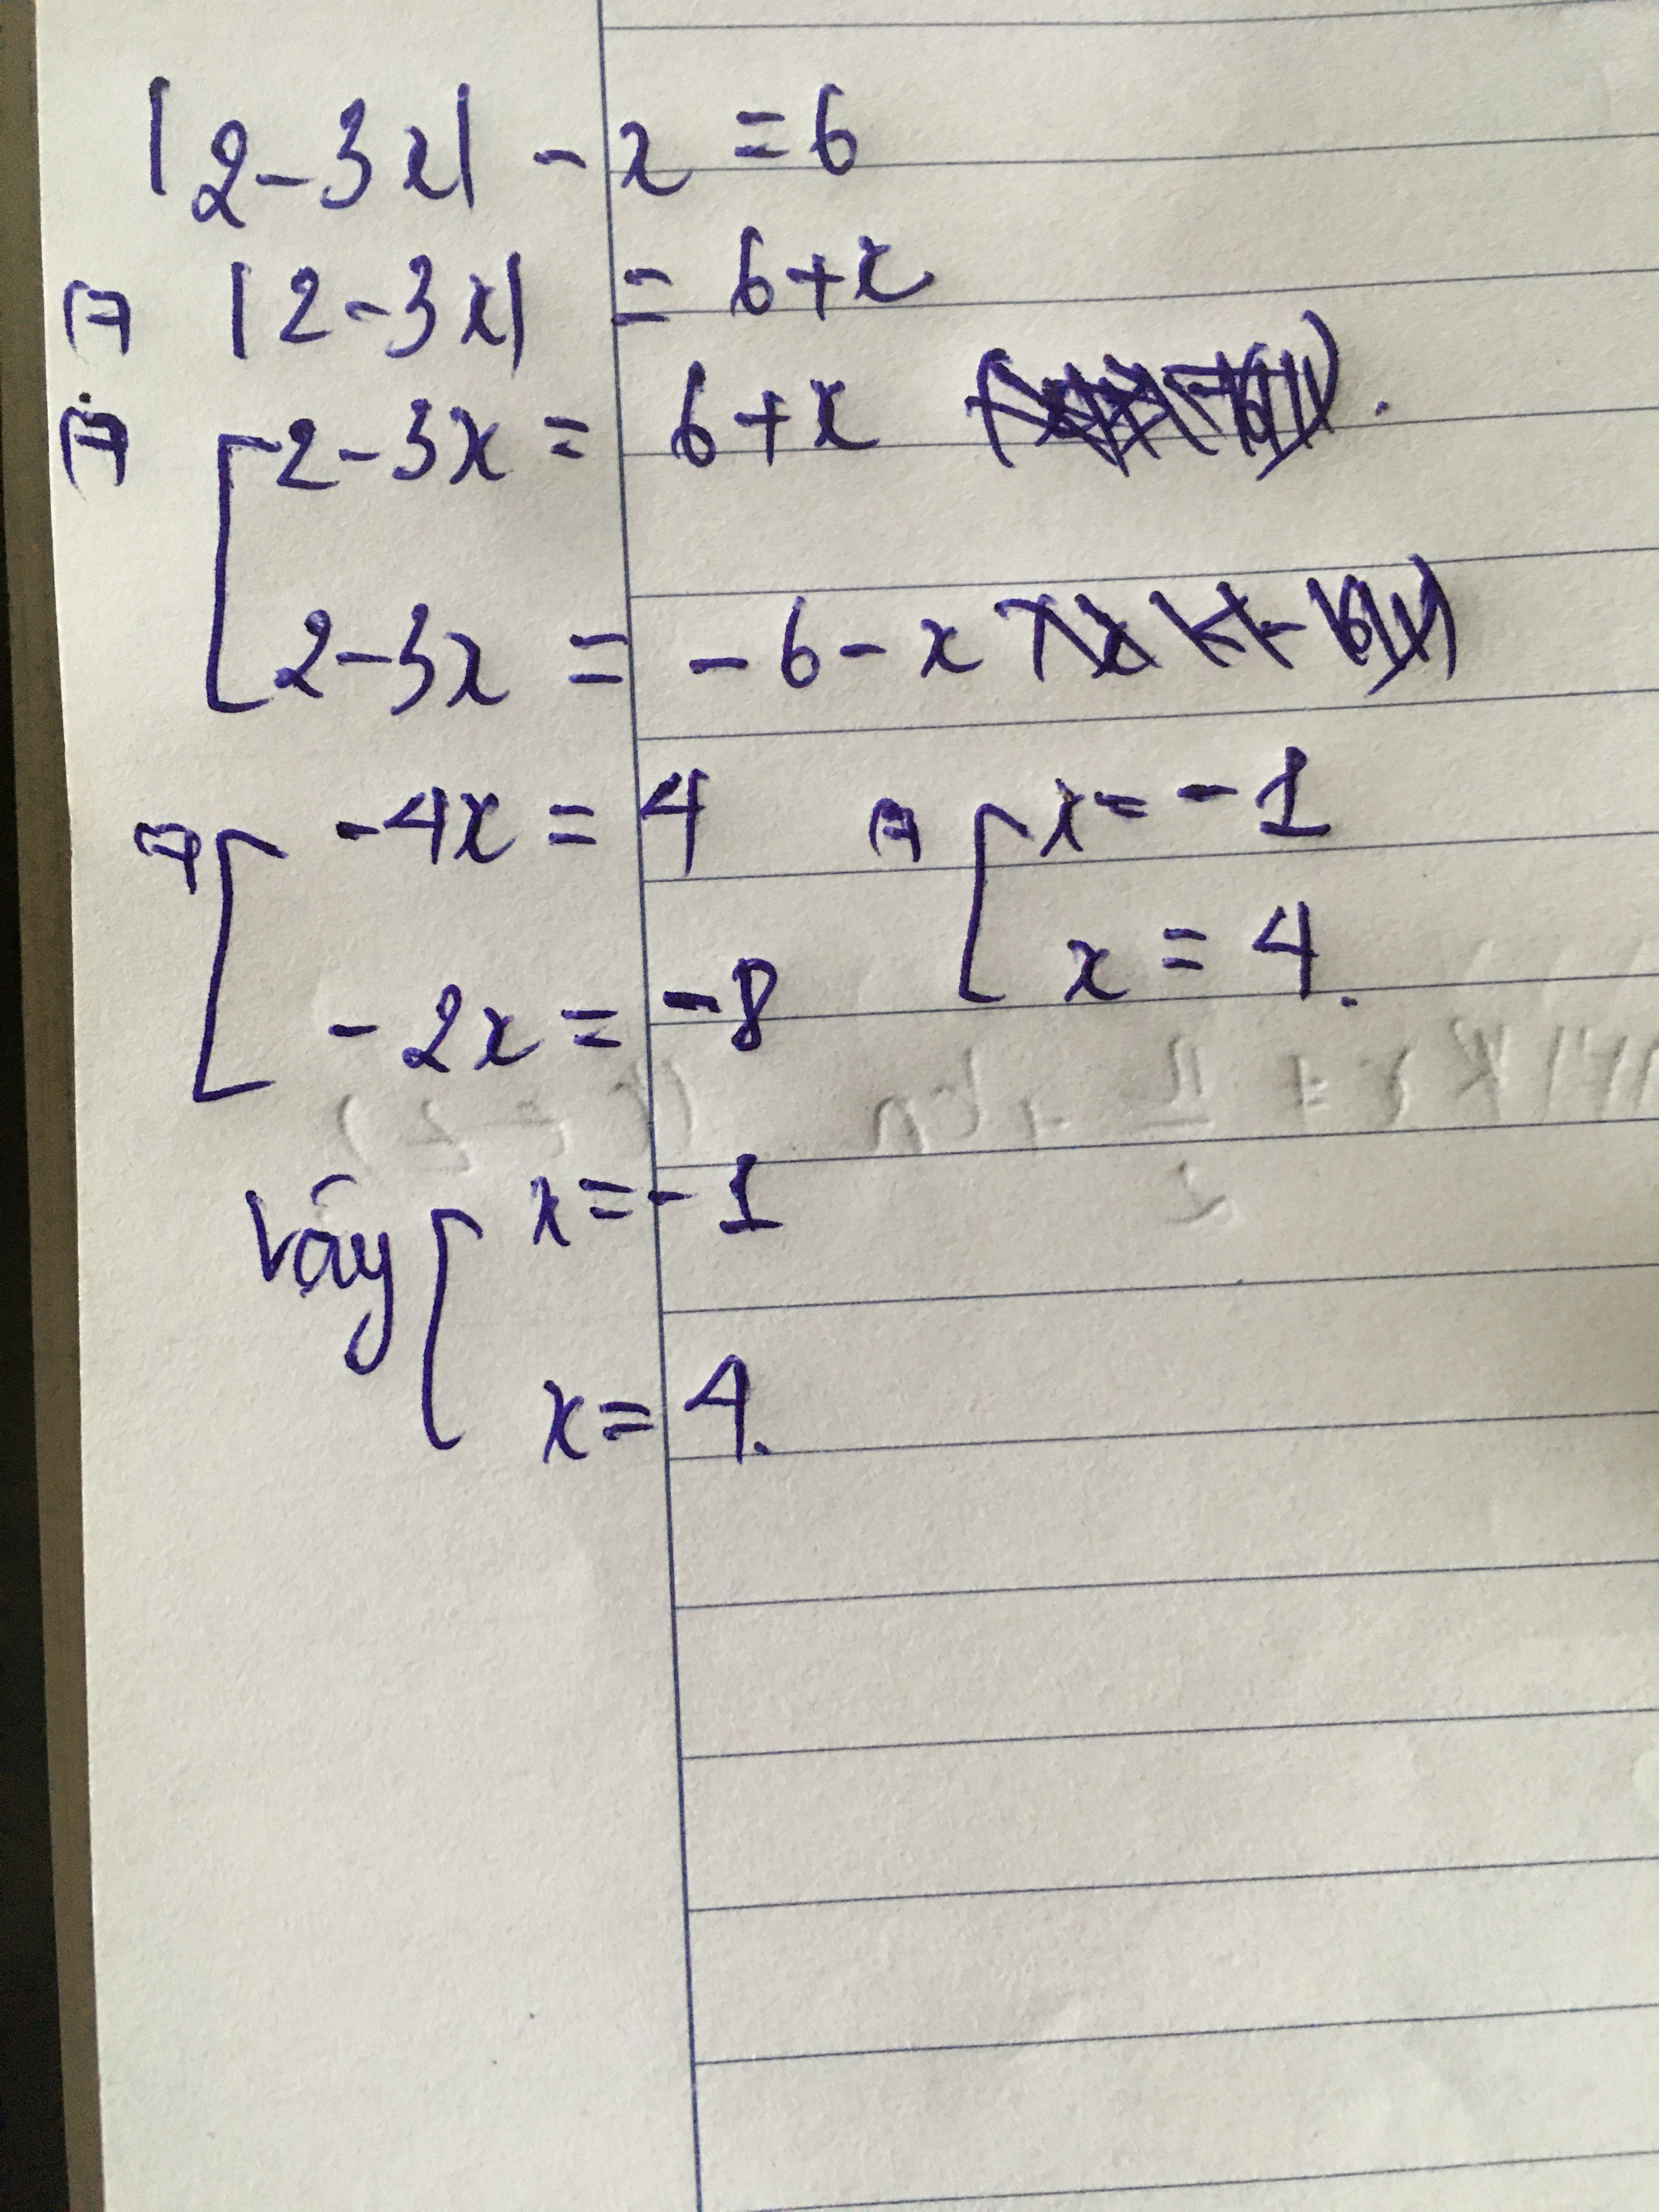 |2-3x| - x = 6
⇔ |2-3x| = 6+x
⇔ [ 2-3x = 6+x
2-3x = -6-x
⇔ [ -4x = 4 ⇔ [ x = -1
-2x = -8 x = 4.
Vậy [ x = -1
x = 4.